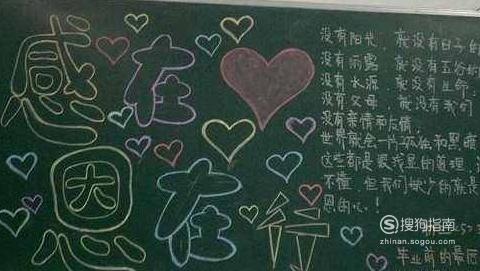 感在
恩在行
没有阳光，就没有日子的
没有雨露，就没有五谷的
没有水源，就没有生命；
没有父母，就没有我们
没有亲情和友情，
世界就会一片孤独和黑暗
这些都是最浅显的道理，
不懂，但我们缺少的就是
恩的心！
毕业前的最后
搜狗指南
zhinan.sogou.com